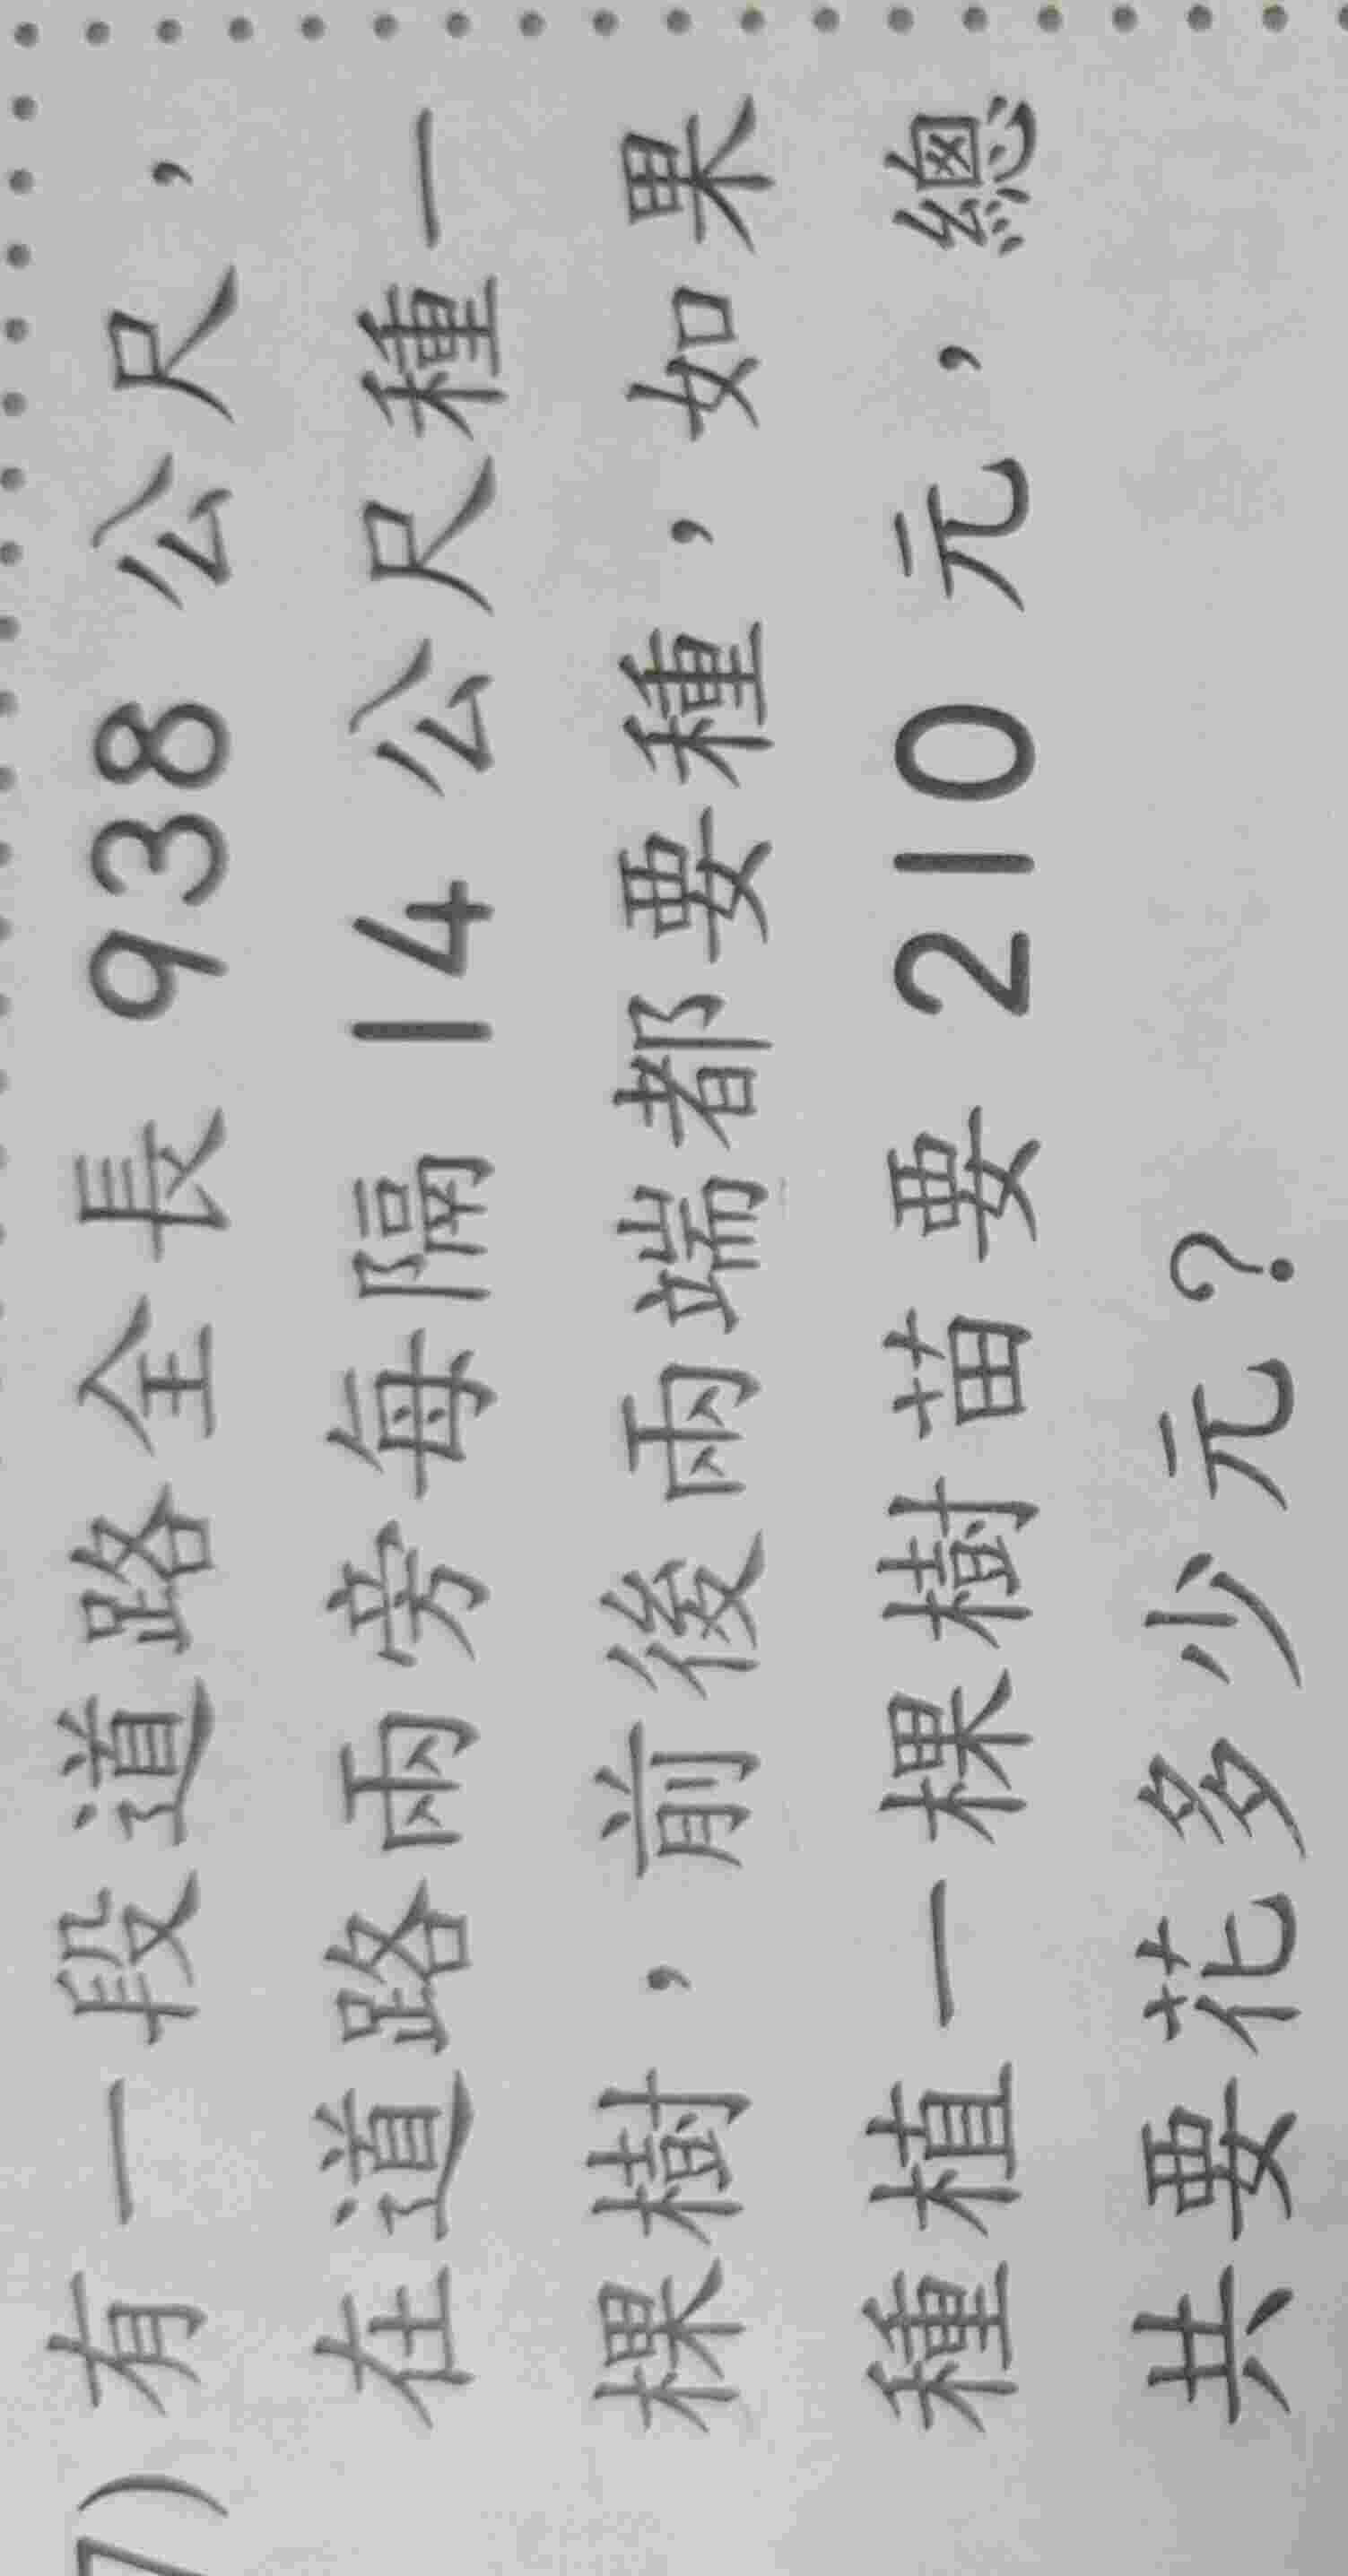 7) 有一段道路全長 938 公尺，
在道路兩旁每隔 14 公尺種一
棵樹，前後兩端都要種，如果
種植一棵樹苗要 210 元，總
共要花多少元？